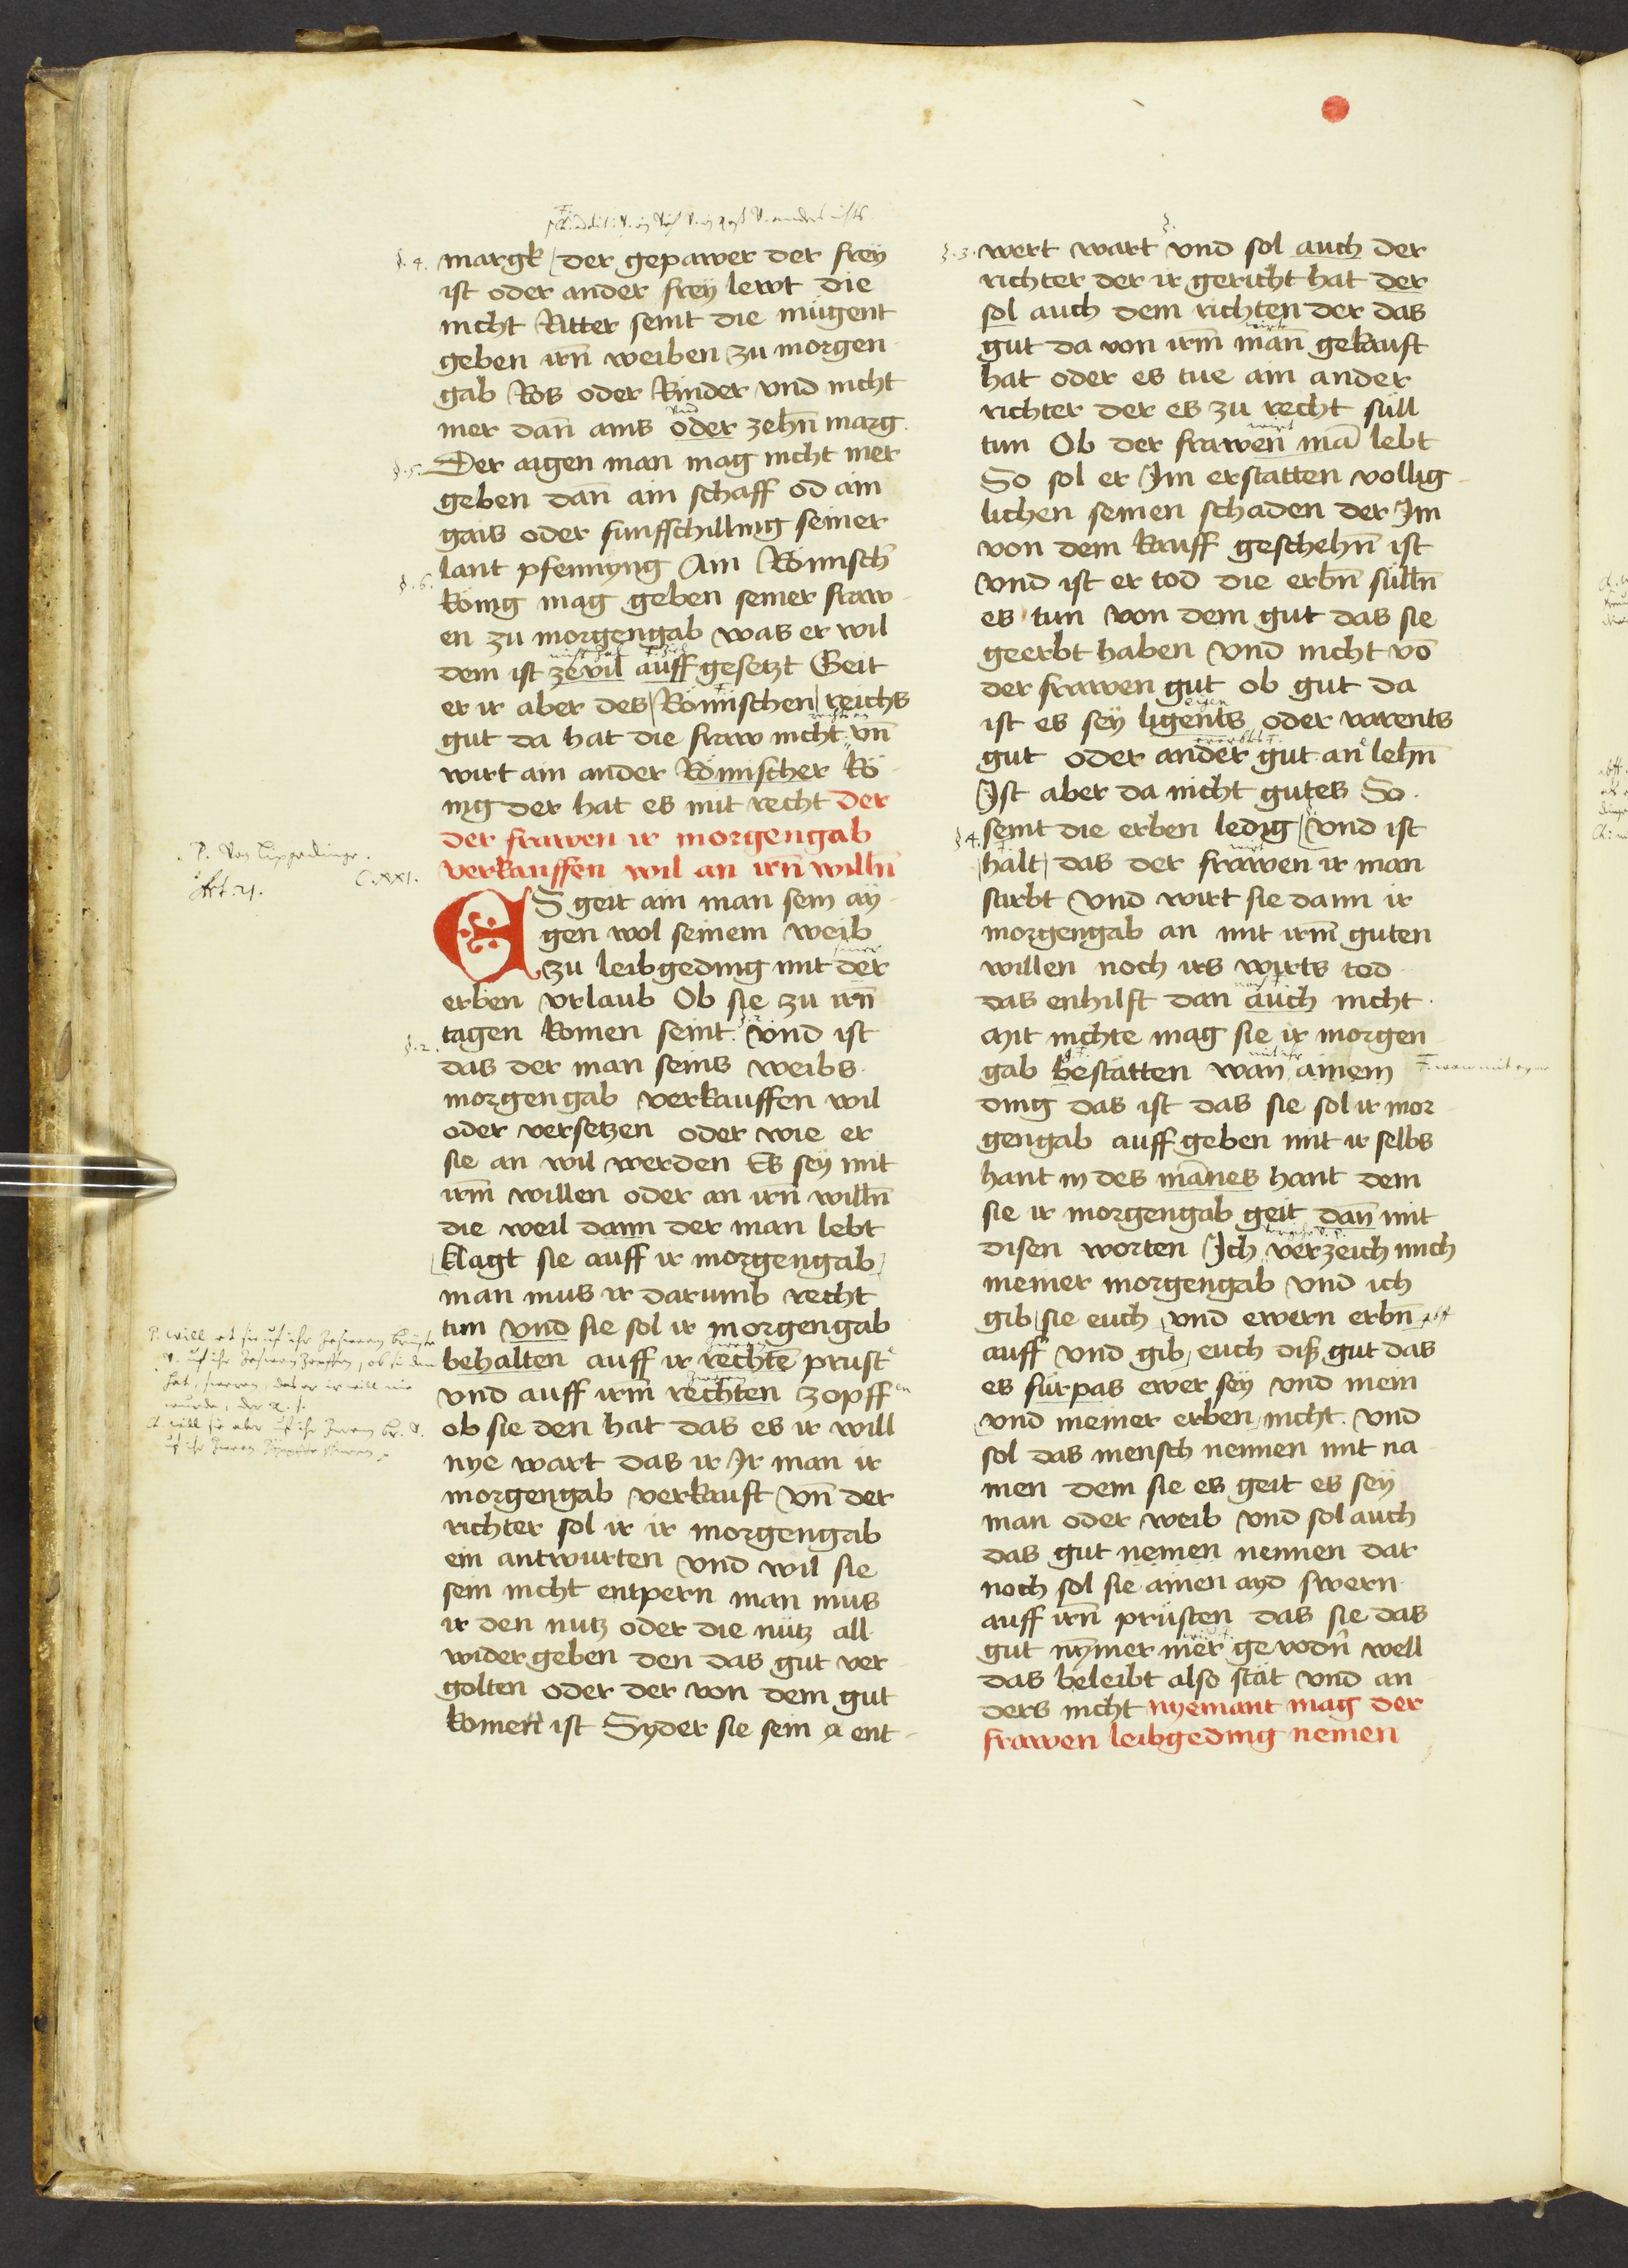 §. 4. margk der gepawer der frey
ist oder ander frey lewt die
nicht Ritter seint die mügent
geben irn̄ weiben zu morgen
gab Ros oder Rinder vnd nicht
vnd
mer dan̄ ains oder zehn̄ marg
§. 5. Der aigen man mag nicht mer
geben dan̄ ain schaff od ain
gais oder funffschilling seiner
lant pfennyng Ain Römisch
§. 6. König mag geben seiner fraw
en zu morgengab was er wil
dem ist zevil auff gesetzt Geit
er ir aber des Römischen reichs
gut da hat die fraw nicht vn̄
wirt ain ander Römischer Kö
nig der hat es mit recht der
der frawen ir morgengab
C. XXI. verkauffen wil an irn̄ willn̄
Art. 21.
ES geit ain man sein ay
gen wol seinem weib
zu leibgeding mit der
erben vrlaub Ob sie zu irn̄
tagen komen seint vnd ist
§. 2. das der man seins weibs
morgengab verkauffen wil
oder versetzen oder wie er
sie an wil werden Es sey mit
irm̄ willen oder an irn̄ willn̄
die weil dann der man lebt
klagt sie auff ir morgengab
man mus ir darumb recht
tun vnd sie sol ir morgengab
behalten auff ir rechtē prust
vnd auff irm̄ rechten zopff
ob sie den hat das es ir will
nye wart das ir Ir man ir
morgengab verkauft vn̄ der
richter sol ir ir morgengab
ein antwurten vnd wil sie
sein nicht enpern man mus
ir den nutz oder die nütz all
wider geben den das gut ver
golten oder der von dem gut
komen ist Syder sie sein ent
§. 3. wert wart vnd sol auch der
richter der ir gericht hat der
sol auch dem richten der das
gut da von irm̄ man̄ gekauft
hat oder es tue ain ander
richter der es zu recht süll
wirt
tun Ob der frawen mā lebt
So sol er Im erstatten vollig
lichen seinen schaden der Im
von dem kauff geschehn̄ ist
vnd ist er tod die erbn̄ sülln̄
es tun von dem gut das sie
geerbt haben vnd nicht vō
der frawen gut ob gut da
eigen
ist es sey ligents oder varents
gut oder ander gut an lehn̄
Ist aber da nicht gutes So
§ 4. seint die erben ledig vnd ist
halt das der frawen ir man
stirbt vnd wirt sie dann ir
morgengab an mit irm̄ guten
willen noch irs wirts tod
das enhilft dan auch nicht
Mit nichte mag sie ir morgen
gab bestätten wan ainem
ding das ist das sie sol ir mor
gengab auff geben mit ir selbs
hant in des mānes hant dem
sie ir morgengab geit dan̄ mit
disen worten Ich verzeich mich
meiner morgengab vnd ich
gib sie euch vnd ewern erbn̄
auff vnd gib euch diß gut das
es fürpas ewer sey vnd mein
vnd meiner erben nicht vnd
sol das mensch nennen mit na
men dem sie es geit es sey
man oder weib vnd sol auch
das gut nemen nennen dar
noch sol sie ainen ayd swern
auff irn̄ prüsten das sie das
gut nȳmer mer gevodn̄ well
das beleibt also stät vnd an
ders nicht nyemant mag der
frawen leibgeding nemen